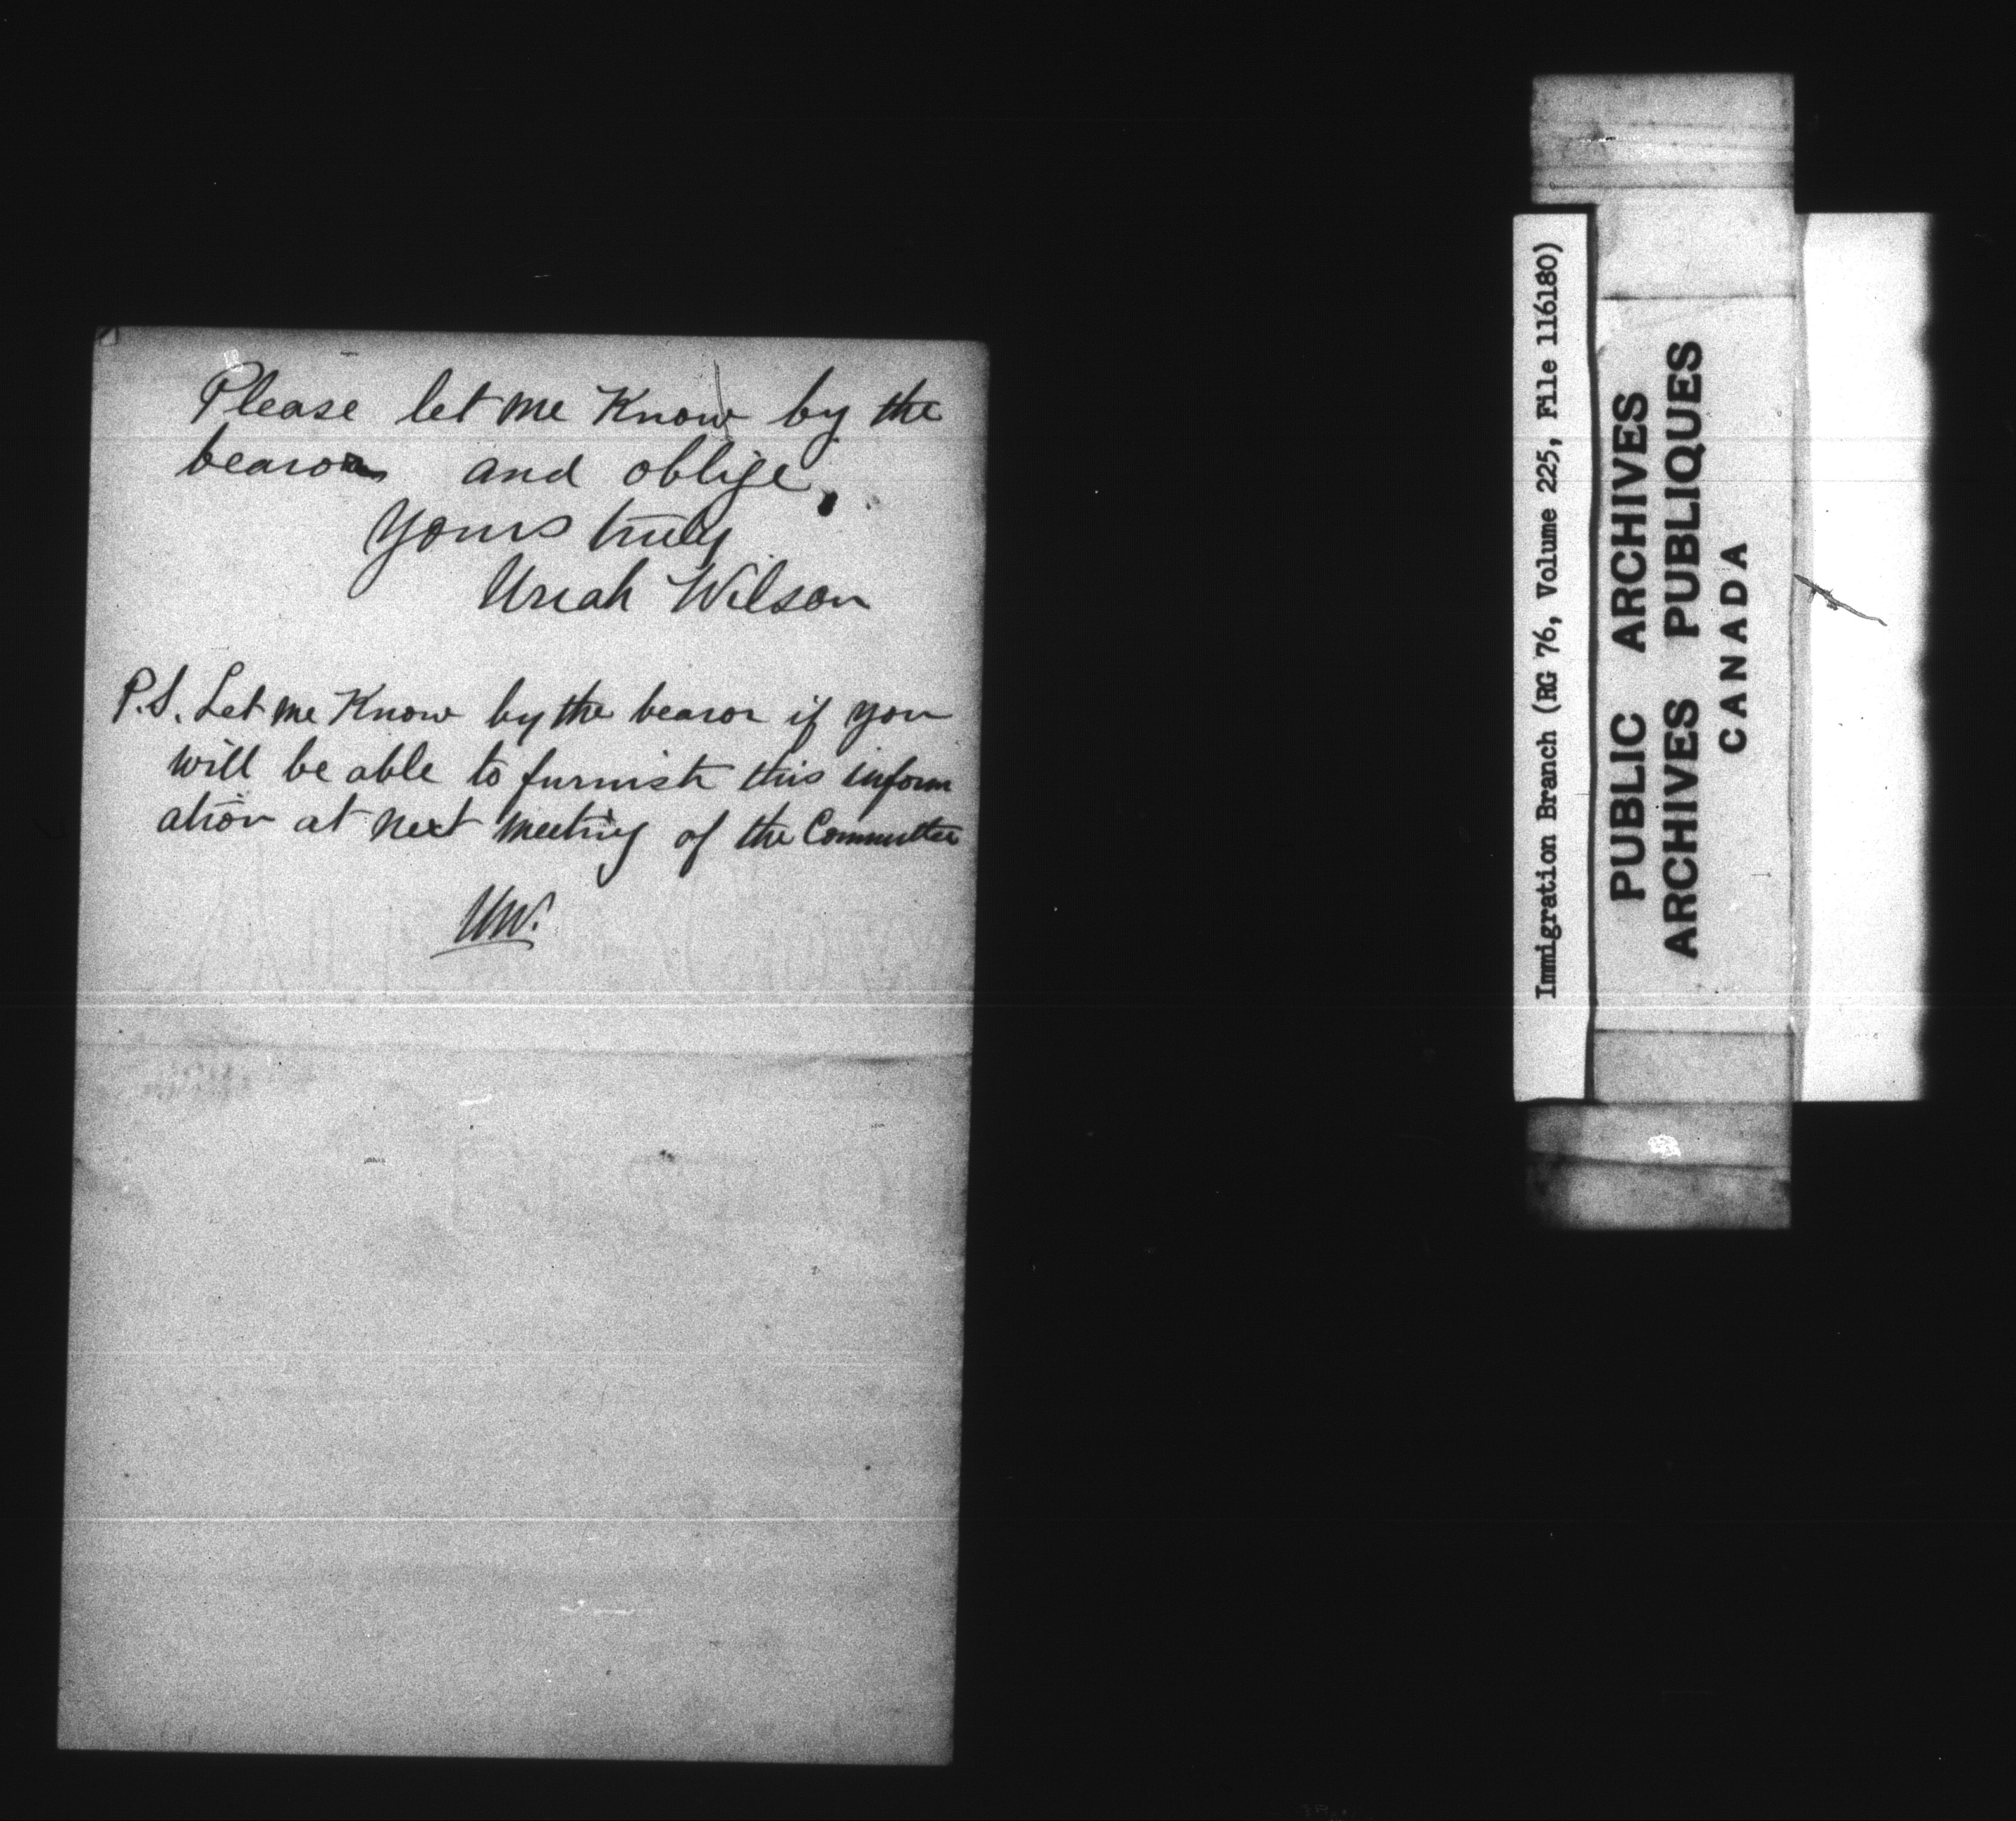 Please let me Know by the
bearor and oblige,
Yours truly
Uriah Wilson
P.S. Let me Know by the bearor if you
will be able to furnish this inform
ation at next meeting of the Committee
UW.
Immigration Branch (RG 76, Volume 225, File 116180)
PUBLIC ARCHIVES
ARCHIVES PUBLIQUES
CANADA